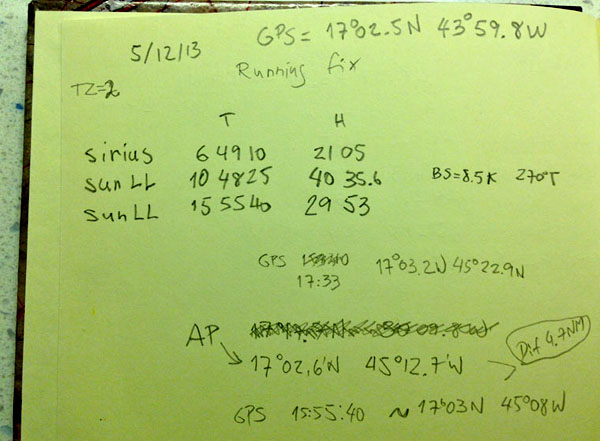 GPS = 17°02.5N 43°59.8W
5/12/13
Running fix
TZ=2
T H
sirius 6 49 10 21 05
sun LL 10 48 25 40 35.6 BS=8.5K 270°T
sun LL 15 55 40 29 53
GPS 17°03,2N 45°22.9N
17:33
AP
17°02,6'N 45°12.7'W Dif 4.7NM
GPS 15:55:40 ~ 17°03N 45°08W